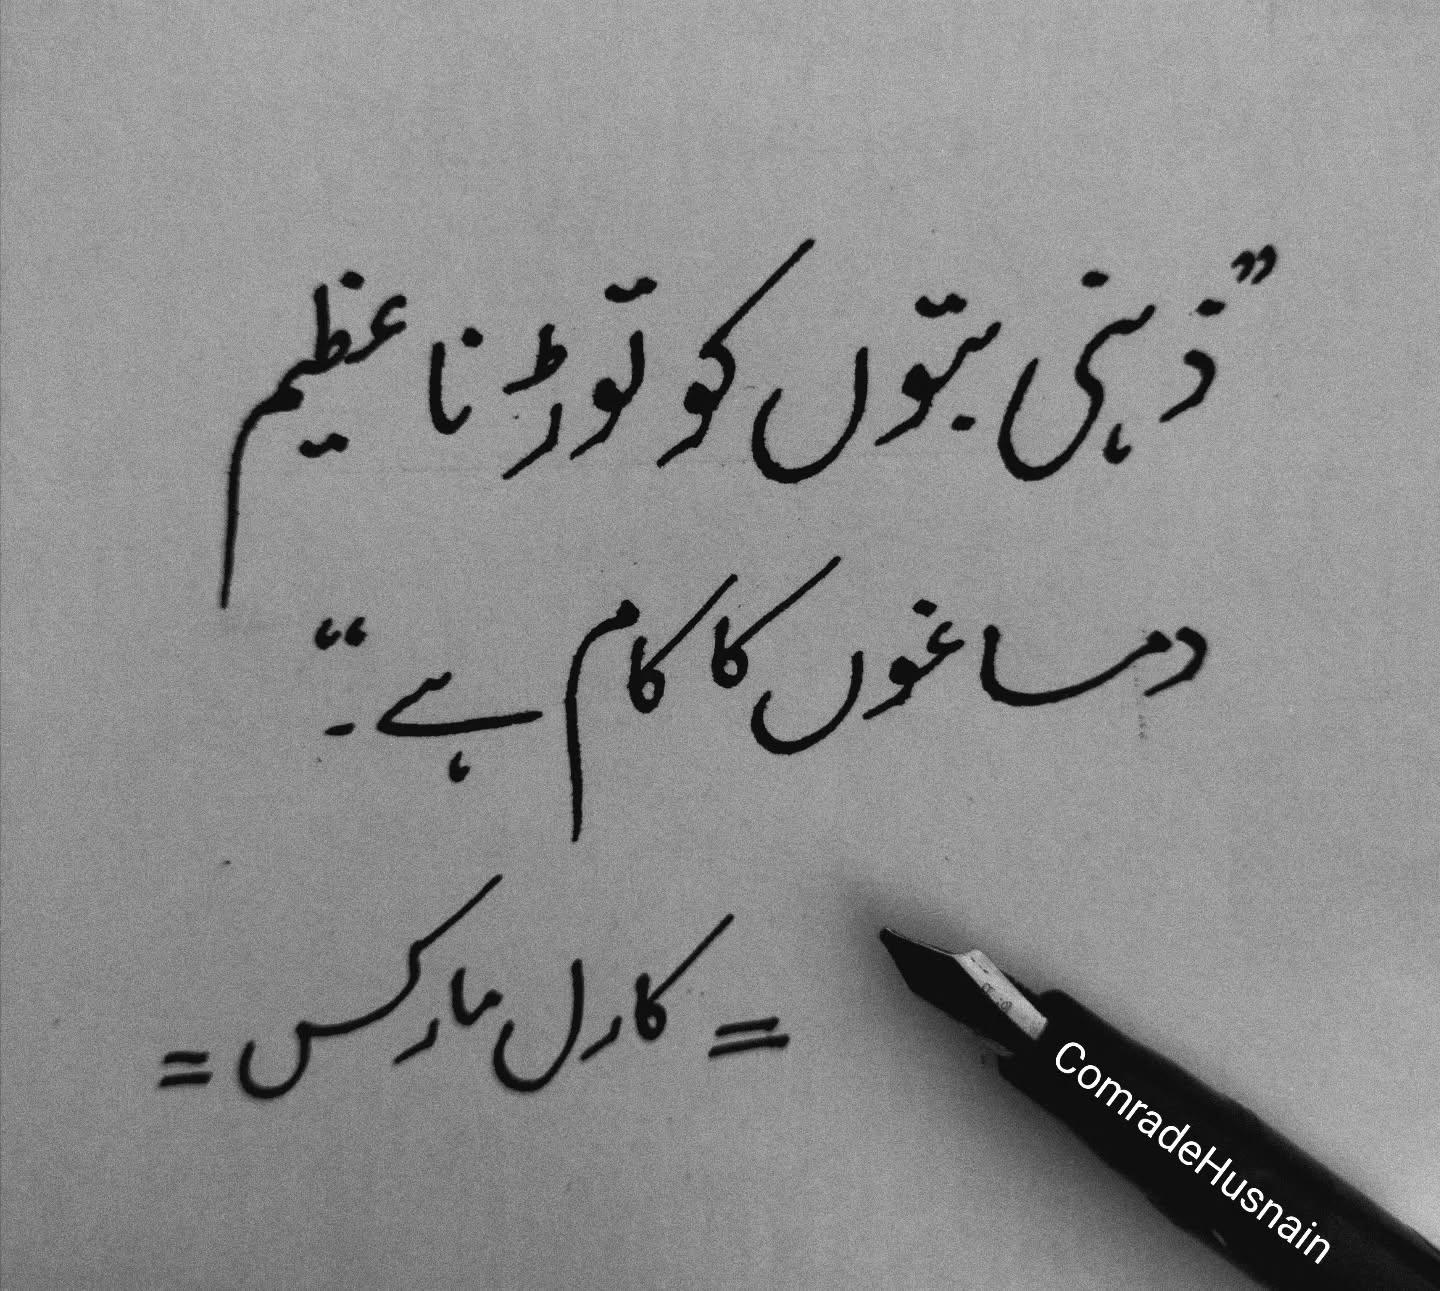 ”ذہنی بتّوں کو توڑنا عظیم
دماغوں کا کام ہے۔“
= کارل مارکس =
ComradeHusnain